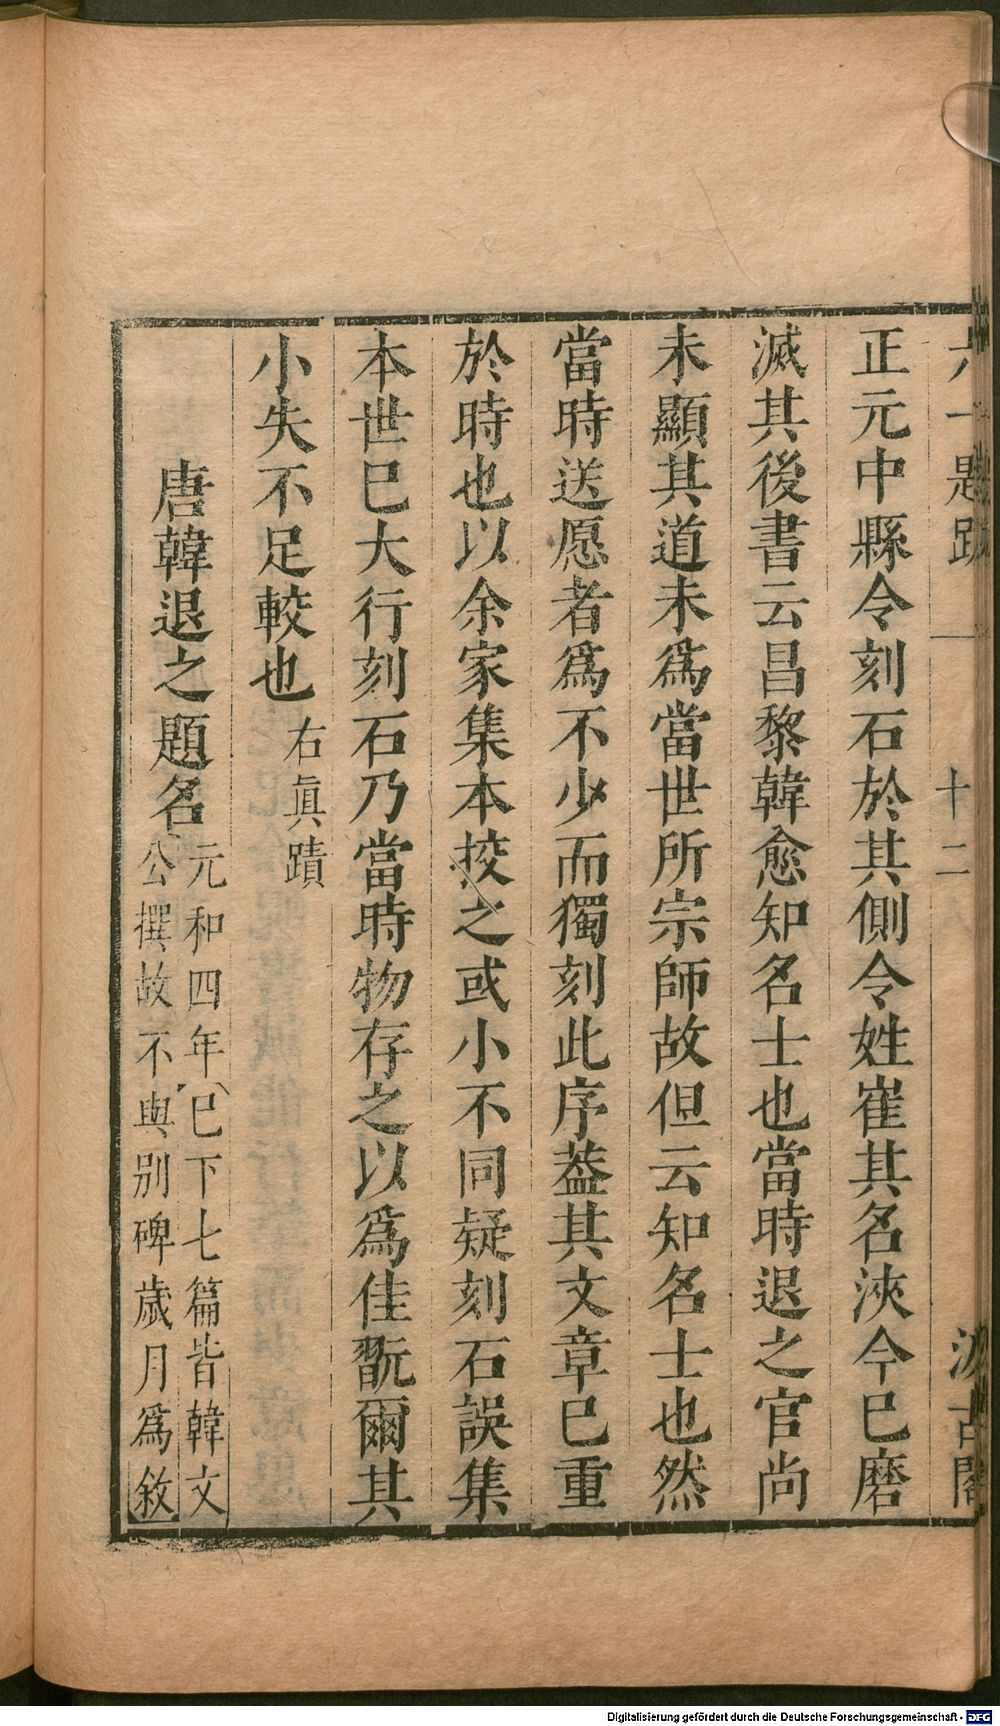 六一題跋 十二 汲古閣
正元中縣令刻石於其側令姓崔其名浹今巳磨
滅其後書云昌黎韓愈知名士也當時退之官尚
未顯其道未爲當世所宗師故但云知名士也然
當時送愿者爲不少而獨刻此序葢其文章巳重
於時也以余家集本挍之或小不同疑刻石誤集
本世巳大行刻石乃當時物存之以爲佳翫爾其
小失不足較也右眞蹟
唐韓退之題名
元和四年 巳下七篇皆韓文
公撰故不與別碑歲月爲敘
Digitalisierung gefördert durch die Deutsche Forschungsgemeinschaft - DFG